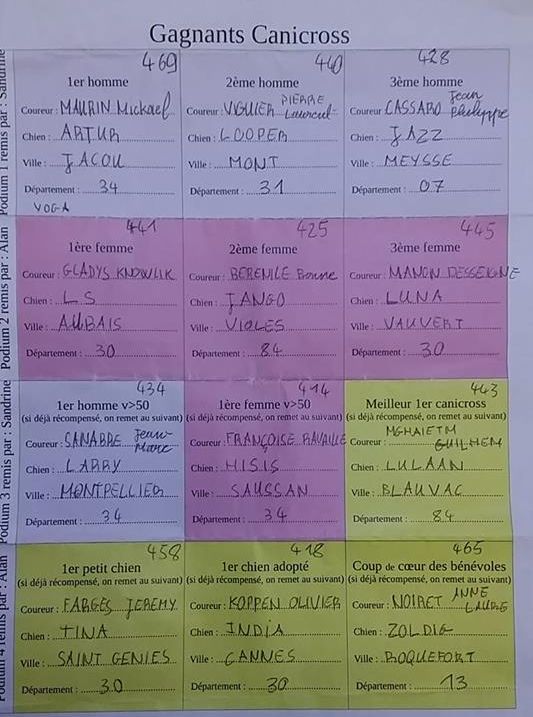 Gagnants Canicross
469
1er homme
Coureur : MAURIN Mickael
Chien : ARTUR
Ville : JACOU
Département : 34
VOGA
440
2ème homme
Coureur : VIGUIER PIERRE Laurent
Chien : LOOPER
Ville : MONT
Département : 31
428
3ème homme
Coureur : CASSARO Jean Philippe
Chien : JAZZ
Ville : MEYSSE
Département : 07
Podium 1 remis par : Sandrine
441
1ère femme
Coureur : GLADYS
Chien : LS
Ville : AUBAIS
Département : 30
425
2ème femme
Coureur : BERENILE
Chien : JANGO
Ville : VIOLES
Département : 84
445
3ème femme
Coureur : MANON DESSEIGNE
Chien : LUNA
Ville : VAUVERT
Département : 30
Podium 2 remis par : Alan
434
1er homme v>50
(si déjà récompensé, on remet au suivant)
Coureur : SANABRE Jean-Marc
Chien : LARRY
Ville : MONTPELLIER
Département : 34
414
1ère femme v>50
(si déjà récompensé, on remet au suivant)
Coureur : FRANÇOISE RAVAILLE
Chien : HISIS
Ville : SAUSSAN
Département : 34
443
Meilleur 1er canicross
(si déjà récompensé, on remet au suivant)
Coureur : GUILHEM
Chien : LULAAN
Ville : BLAUVAC
Département : 84
Podium 3 remis par : Sandrine
458
1er petit chien
(si déjà récompensé, on remet au suivant)
Coureur : FARGES JEREMY
Chien : TINA
Ville : SAINT GENIES
Département : 30
418
1er chien adopté
(si déjà récompensé, on remet au suivant)
Coureur : KOPPEN OLIVIER
Chien : INDIA
Ville : CANNES
Département : 30
465
Coup de cœur des bénévoles
(si déjà récompensé, on remet au suivant)
Coureur : NOIRET ANNE LAURE
Chien : ZOLDIG
Ville : ROQUEFORT
Département : 13
Podium 4 remis par : Alan